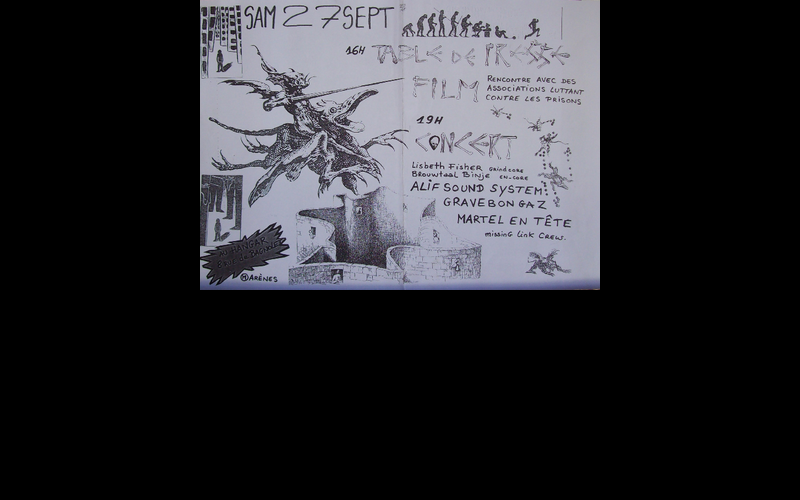 SAM 27 SEPT
16H TABLE DE PRESSE
FILM
RENCONTRE AVEC DES
ASSOCIATIONS LUTTANT
CONTRE LES PRISONS
19H
CONCERT
Lisbeth Fisher GRINDCORE
Brouwtaal Binje EN-CORE
ALIF SOUND SYSTEM
GRAVEBONGAZ
MARTEL EN TÊTE
missing link CREW.
HANGAR
Ⓜ ARÈNES